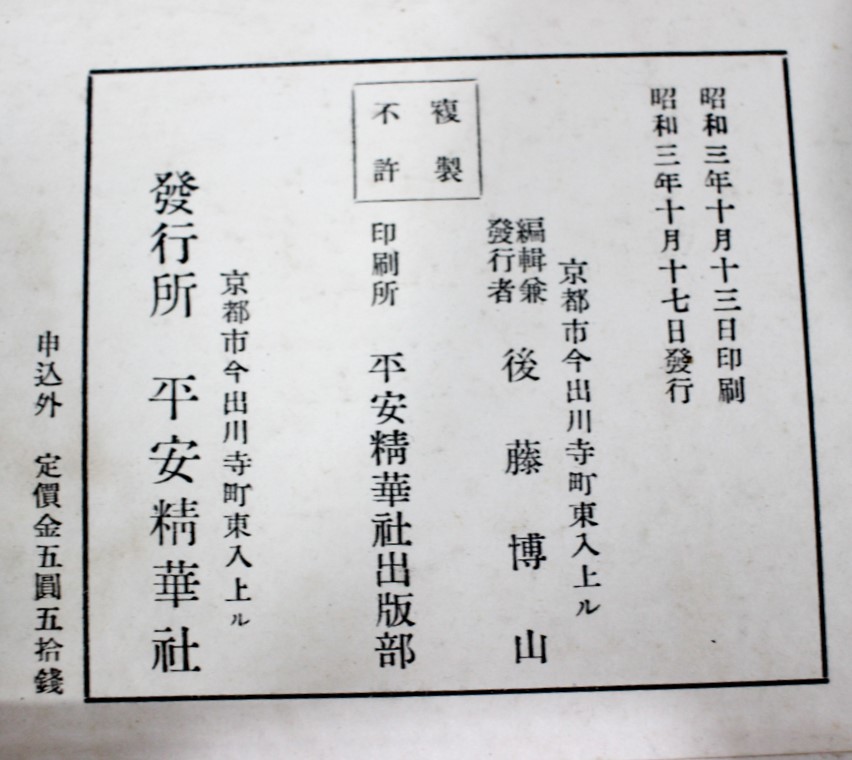 昭和三年十月十三日印刷
昭和三年十月十七日發行
京都市今出川寺町東入上ル
編輯兼
發行者
後藤博山
複製
不許
印刷所 平安精華社出版部
京都市今出川寺町東入上ル
發行所 平安精華社
申込外 定價金五圓五拾錢